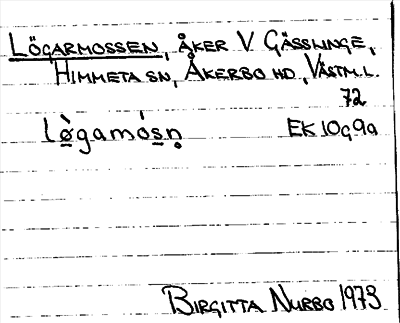 LÖGARMOSSEN, ÅKER V. GÄSSLINGE,
HIMMETA SN, ÅKERBO HD., VÄSTM. L.
72
lø̀gamósn̥ EK 10g9a
BIRGITTA NURBO 1973